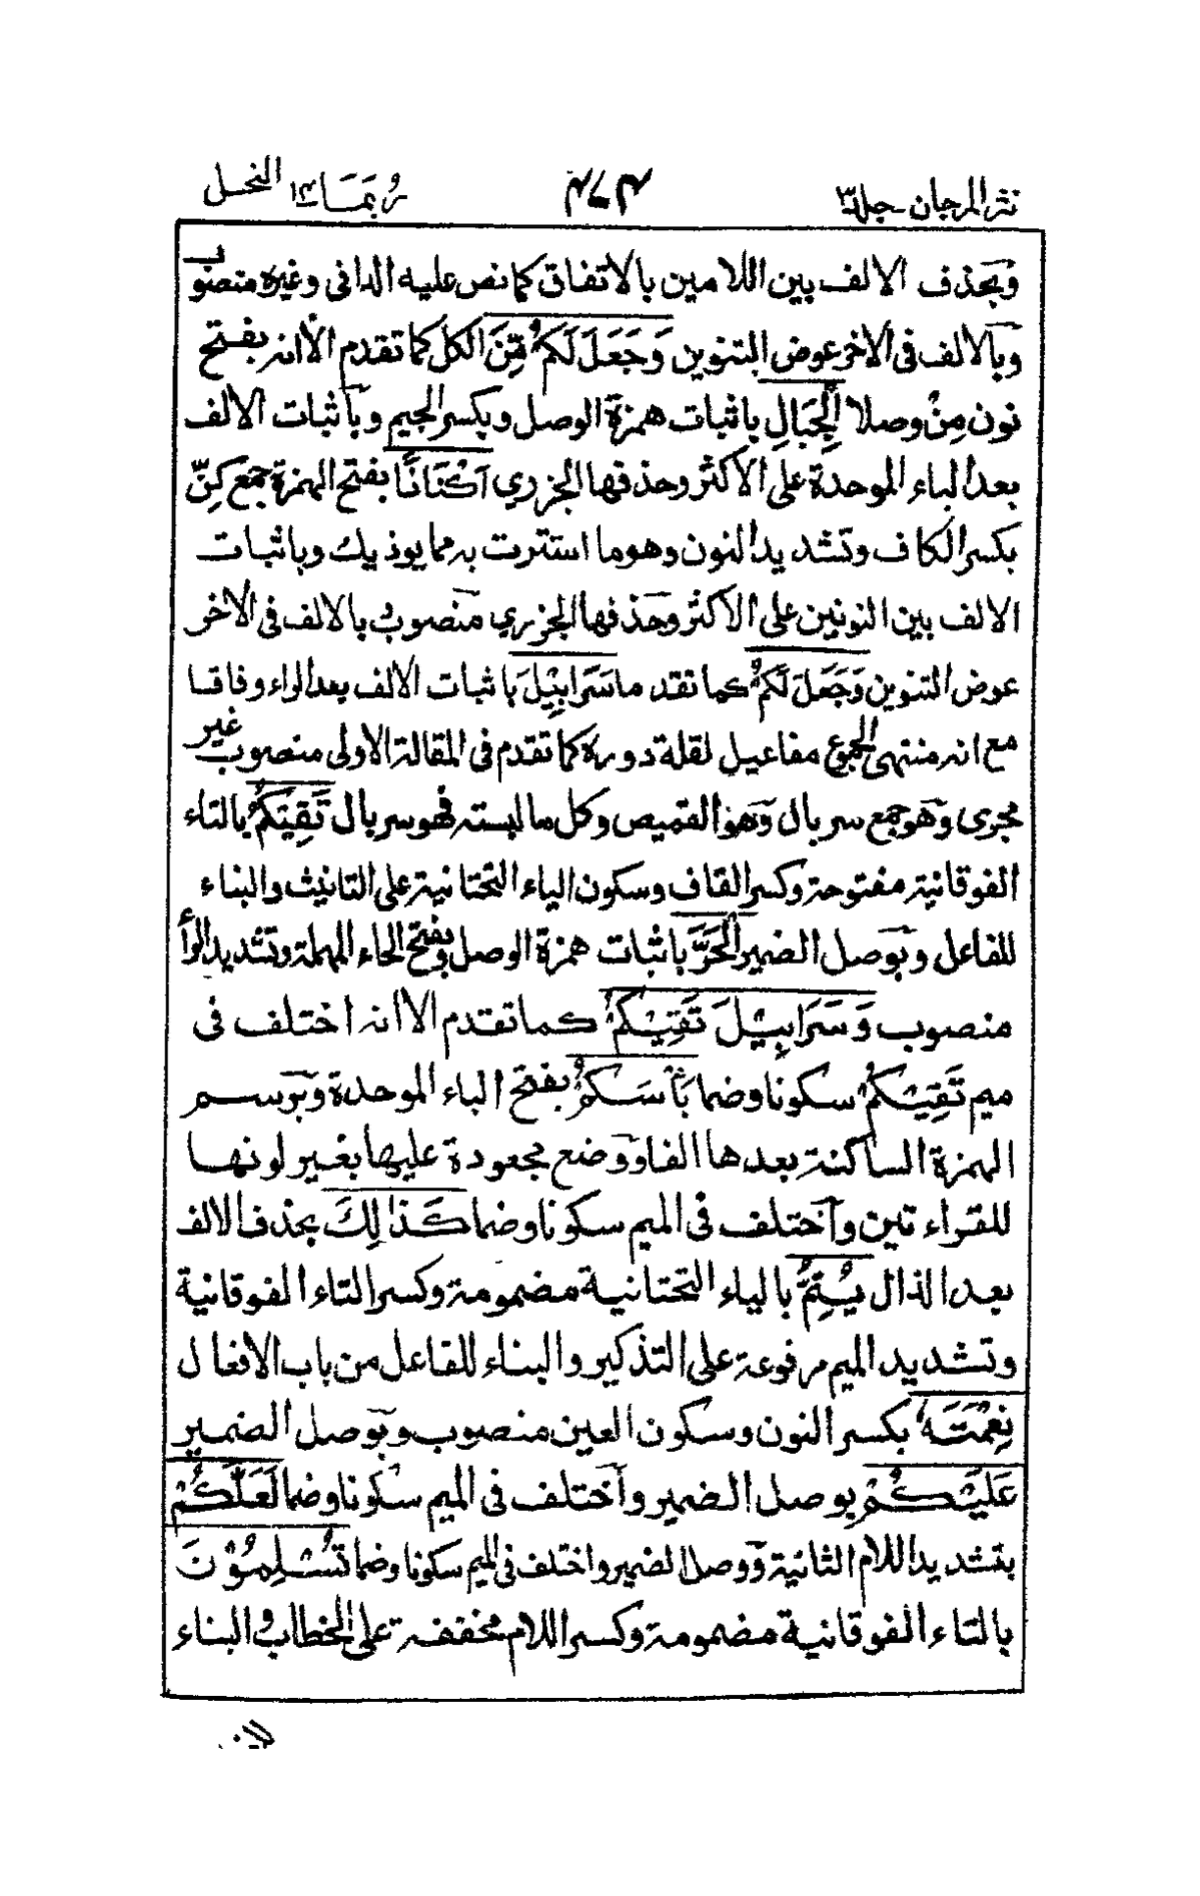 نثر المرجان جلد٣
ربما ١٤ النحل
وبحذف الالف بين اللامين بالاتفاق كما نص عليه الدانى وغيره منصوب
وبالالف فى الاخر عوض التنوين وَجَعَلَ لَكُمْ مِّنَ الكل كما تقدم الا انه بفتح
نون مِنْ وصلا الْجِبَالِ باثبات همزة الوصل وبكسر الجيم وباثبات الالف
بعد الباء الموحدة على الاكثر وحذفها الجزري اَكْنَانًا بفتح الهمزة جمع كِنّ
بكسر الكاف وتشديد النون وهو ما استترت به مما يوذيك وباثبات
الالف بين النونين على الاكثر وحذفها الجزري منصوب بالالف فى الاخر
عوض التنوين وَجَعَلَ لَكُمْ كما تقدم سَرَابِيْلَ باثبات الالف بعد الراء وفاقا
مع انه منتهى الجموع مفاعيل لقلة دوره كما تقدم فى المقالة الاولى منصوب غير
مجرى وهو جمع سربال وهو القميص وكل ما لبسته فهو سربال تَقِيْكُمُ بالتاء
الفوقانية مفتوحة وكسر القاف وسكون الياء التحتانية على التانيث والبناء
للفاعل وبوصل الضمير الْحَرَّ باثبات همزة الوصل وبفتح الحاء المهملة وتشديد الراء
منصوب وَسَرَابِيْلَ تَقِيْكُمْ كما تقدم الا انه اختلف فى
ميم تَقِيْكُمْ سكونا وضما بَاْسَكُمْ بفتح الباء الموحدة وبرسم
الهمزة الساكنة بعدها الفا ووضع مجعودة عليها بغير لونها
للقراءتين واختلف فى الميم سكونا وضما كَذٰلِكَ بحذف الالف
بعد الذال يُتِمُّ بالياء التحتانية مضمومة وكسر التاء الفوقانية
وتشديد الميم مرفوعة على التذكير والبناء للفاعل من باب الافعال
نِعْمَتَهٗ بكسر النون وسكون العين منصوب وبوصل الضمير
عَلَيْكُمْ بوصل الضمير واختلف فى الميم سكونا وضما لَعَلَّكُمْ
بتشديد اللام الثانية ووصل الضمير واختلف فى الميم سكونا وضما تُسْلِمُوْنَ
بالتاء الفوقانية مضمومة وكسر اللام مخففة على الخطاب والبناء